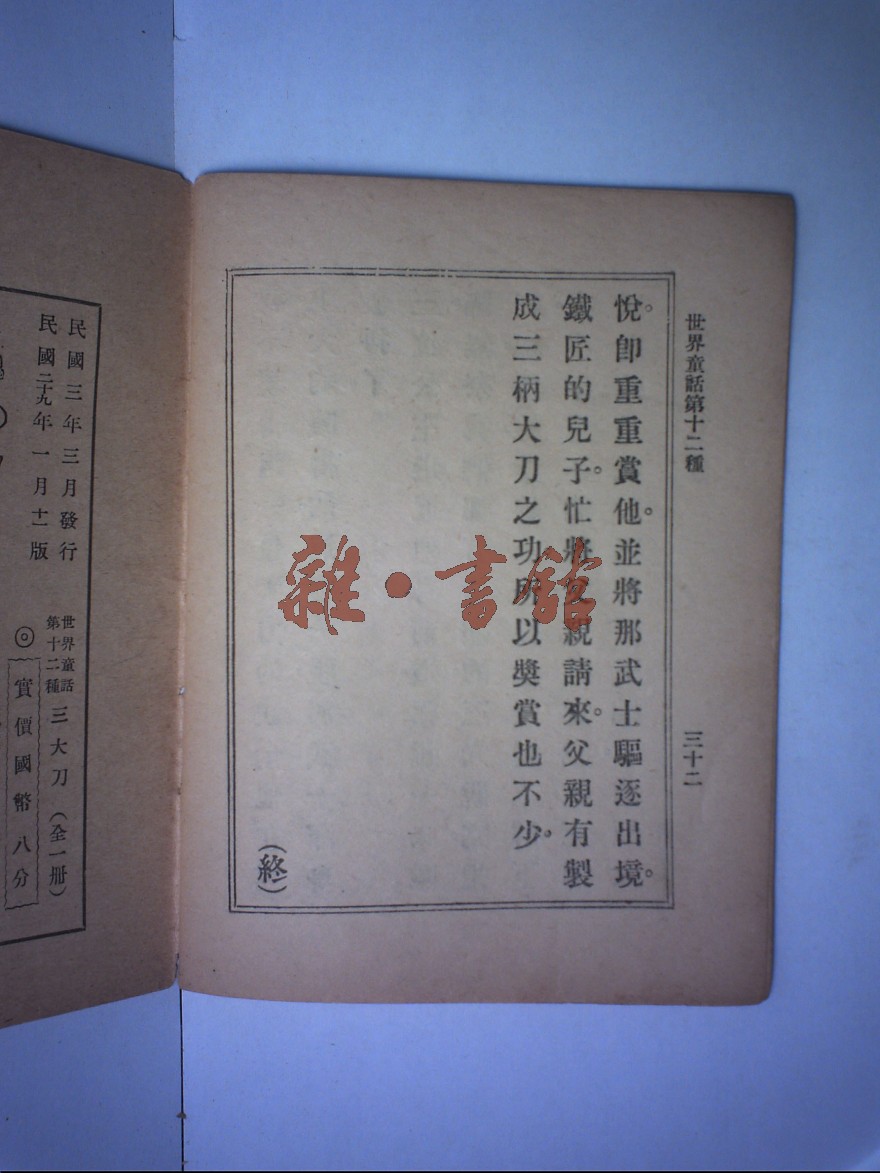 世界童話第十二種
三十二
悅。卽重重賞他。並將那武士驅逐出境。
鐵匠的兒子。忙將父親請來。父親有製
成三柄大刀之功所以獎賞也不少。
(終)
雜·書館
民國三年三月發行
民國二十九年一月十二版
世界童話
第十二種
三大刀(全一冊)
◎實價國幣八分